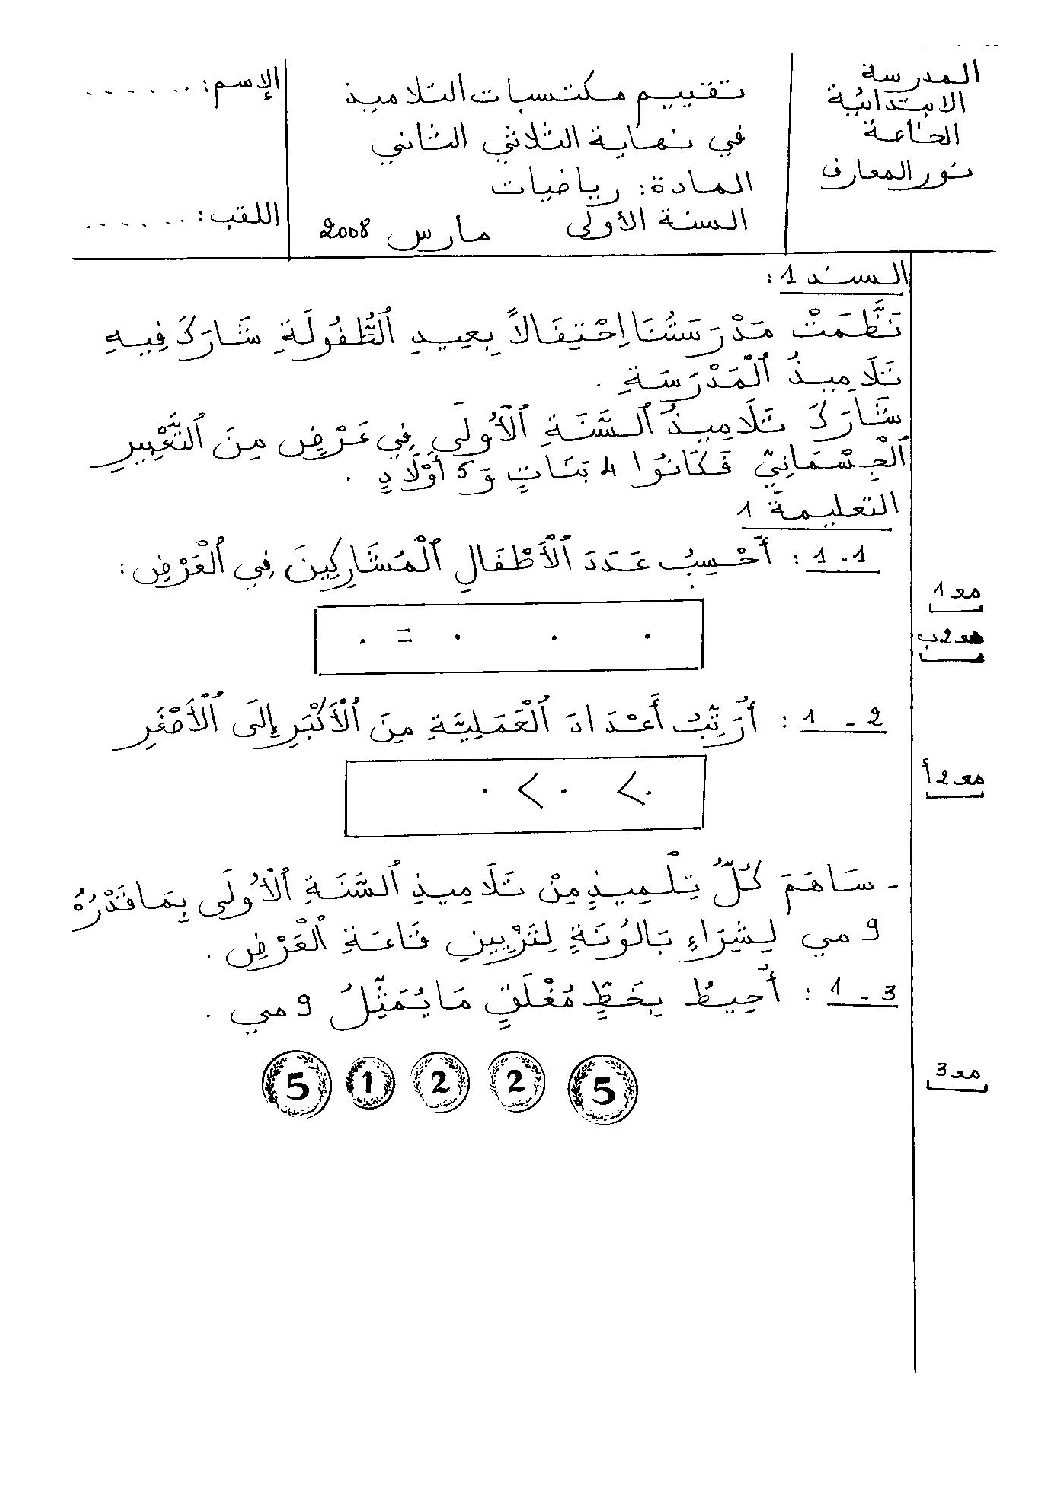 المدرسة
الابتدائية
الخاصة
نور المعارف
تقييم مكتسبات التلاميذ
في نهاية الثلاثي الثاني
المادة: رياضيات
السنة الأولى مارس 2008
الإسم: ......
اللقب: ......
السند 1:
نَظَّمَتْ مَدْرَسَتُنَا اِحْتِفَالاً بِعِيدِ ٱلطُّفُولَةِ شَارَكَ فِيهِ
تَلَامِيذُ ٱلْمَدْرَسَةِ.
شَارَكَ تَلَامِيذُ ٱلسَّنَةِ ٱلْأُولَى فِي عَرْضٍ مِنَ ٱلتَّعْبِيرِ
ٱلْجِسْمَانِيِّ فَكَانُوا 4 بَنَاتٍ وَ 5 أَوْلَادٍ.
التعليمة 1
1-1: أَحْسِبُ عَدَدَ ٱلْأَطْفَالِ ٱلْمُشَارِكِينَ فِي ٱلْعَرْضِ:
. . . = .
مع 1
مع 2ب
1-2: أُرَتِّبُ أَعْدَادَ ٱلْعَمَلِيَّةِ مِنَ ٱلْأَكْبَرِ إِلَى ٱلْأَصْغَرِ
. > . > .
مع 2أ
- سَاهَمَ كُلُّ تِلْمِيذٍ مِنْ تَلَامِيذِ ٱلسَّنَةِ ٱلْأُولَى بِمَا قَدْرُهُ
9 مي لِشِرَاءِ بَالُونَةٍ لِتَزْيِينِ قَاعَةِ ٱلْعَرْضِ.
1-3: أُحِيطُ بِخَطٍّ مُغْلَقٍ مَا يُمَثِّلُ 9 مي.
5 1 2 2 5
مع 3